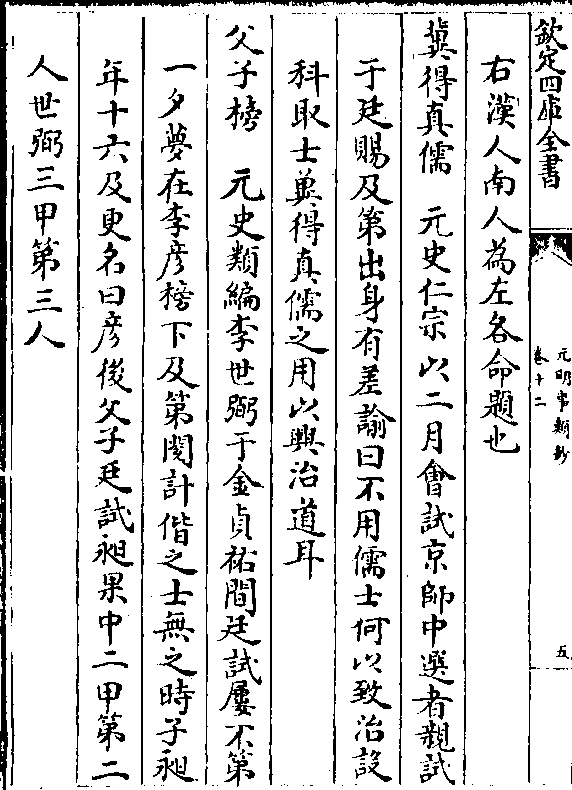 欽定四庫全書
元明事類鈔
卷十二
五
右漢人南人為左各命題也
冀得真儒 元史仁宗以二月會試京師中選者親試
于廷賜及第出身有差諭曰不用儒士何以致治設
科取士冀得真儒之用以興治道耳
父子榜 元史類編李世弼于金貞祐間廷試屢不第
一夕夢在李彦榜下及第閲計偕之士無之時子昶
年十六及更名曰彦後父子廷試昶果中二甲第二
人世弼三甲第三人